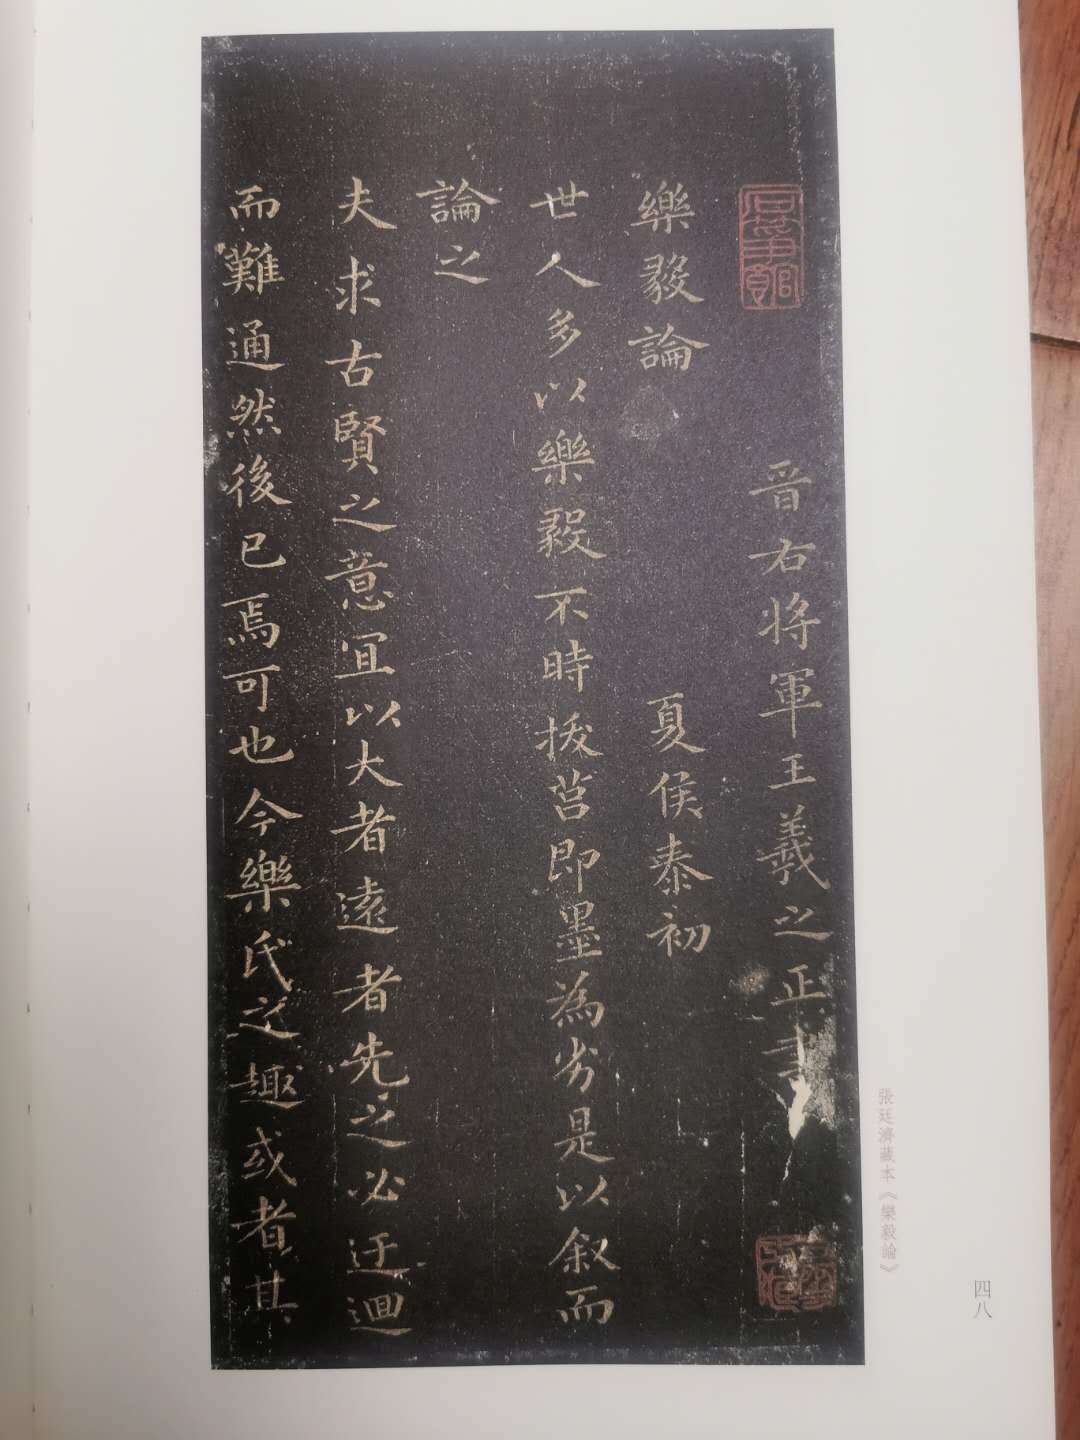 晉右將軍王羲之正書
樂毅論
夏侯泰初
世人多以樂毅不時拔莒即墨為劣是以叙而
論之
夫求古賢之意宜以大者遠者先之必迂迴
而難通然後已焉可也今樂氏之趣或者其
張廷濟藏本《樂毅論》
四八